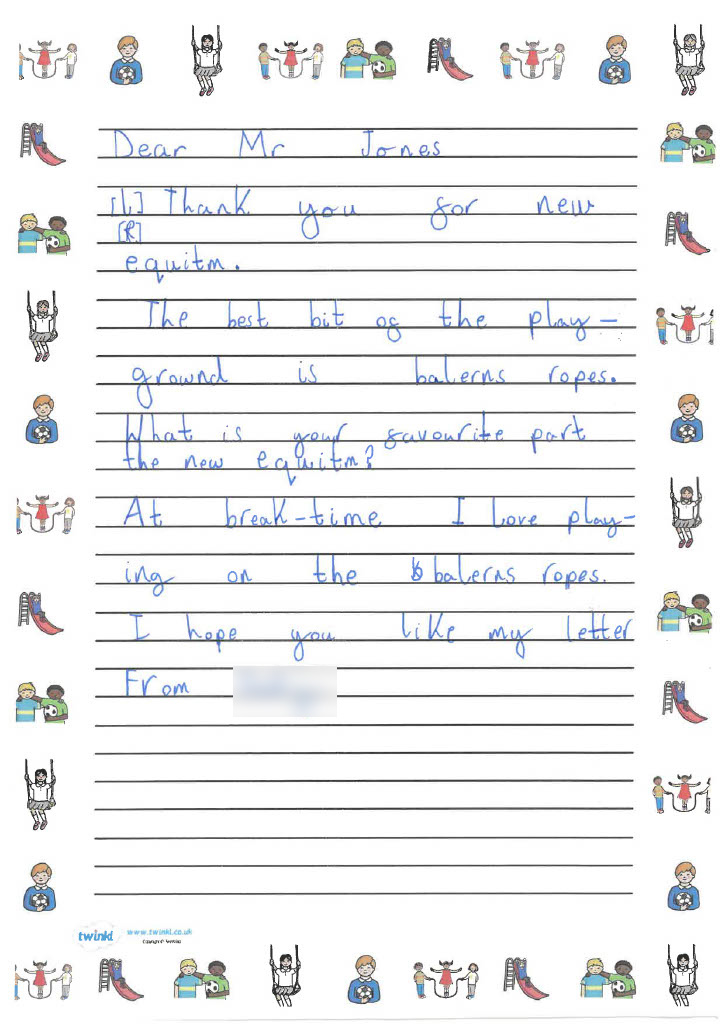 Dear Mr Jones
[L] Thank you for new
[R]
equitm.
The best bit of the play-
ground is balerns ropes.
What is your favourite part
the new equitm?
At break-time I love play-
ing on the balerns ropes.
I hope you like my letter
From
twinkl www.twinkl.co.uk